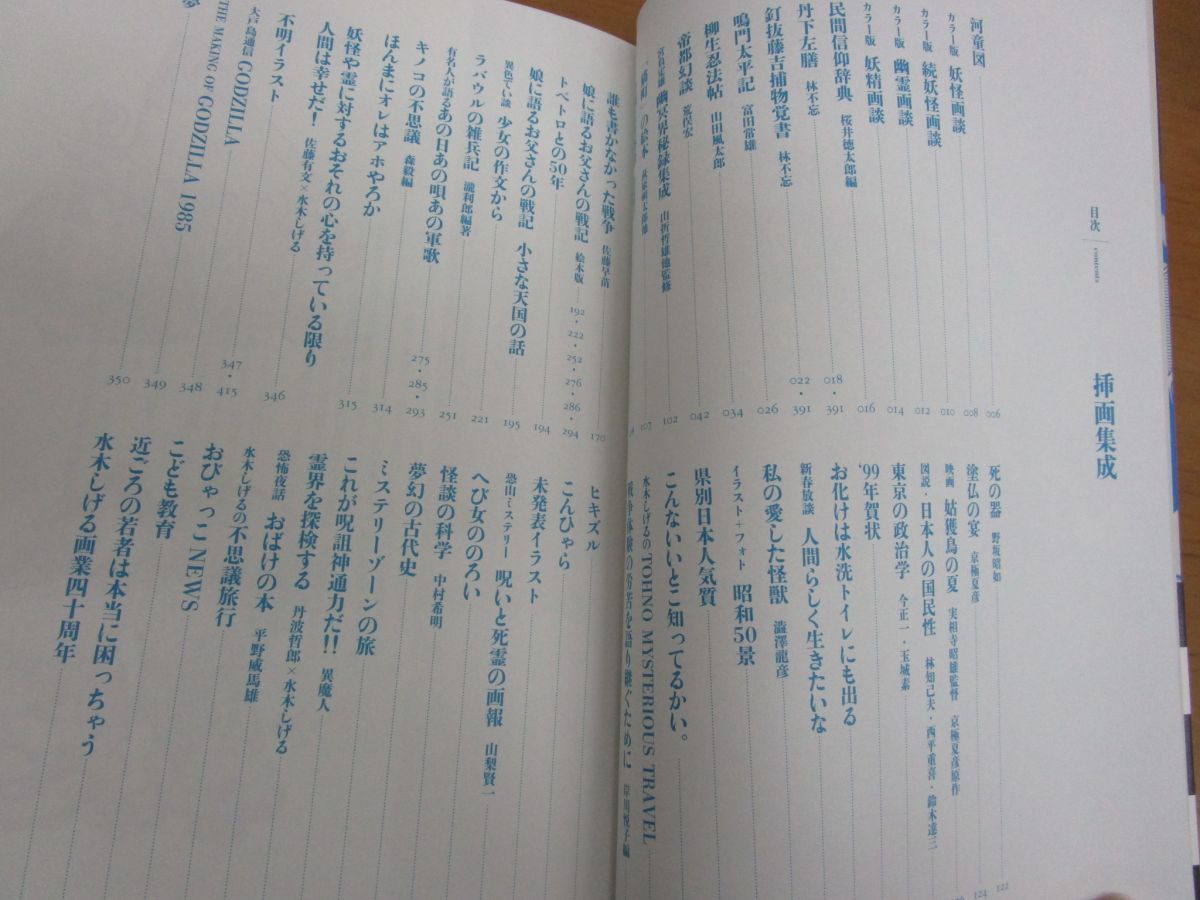 目次 contents
挿画集成
河童図 006
カラー版 妖怪画談 008
カラー版 続妖怪画談 010
カラー版 幽霊画談 012
カラー版 妖精画談 014
民間信仰辞典 桜井徳太郎編 016
丹下左膳 林不忘 018・391
釘抜藤吉捕物覚書 林不忘 022・391
鳴門太平記 富田常雄 026
柳生忍法帖 山田風太郎 034
帝都幻談 荒俣宏 042
幽冥界秘録集成 山折哲雄他監修 102
の絵本 107
死の器 野坂昭如 122
塗仏の宴 京極夏彦 124
映画 姑獲鳥の夏 実相寺昭雄監督 京極夏彦原作
図説・日本人の国民性 林知己夫・西平重喜・鈴木達三
東京の政治学 今正一・玉城素
'99年賀状
お化けは水洗トイレにも出る
新春放談 人間らしく生きたいな
私の愛した怪獣 澁澤龍彦
イラスト+フォト 昭和50景
県別日本人気質
こんないいとこ知ってるかい。
水木しげるのTOHNO MYSTERIOUS TRAVEL
戦争体験の労苦を語り継ぐために 岸川悦子編
誰も書かなかった戦争 佐藤早苗 170
娘に語るお父さんの戦記 絵本版 192・222・252・276・286・294
トペトロとの50年
娘に語るお父さんの戦記 小さな天国の話 194
異色でい談 少女の作文から 195
ラバウルの雑兵記 瀧利郎編著 221
有名人が語るあの日あの唄あの軍歌 251
キノコの不思議 森毅編 275・285・293
ほんまにオレはアホやろか 314
妖怪や霊に対するおそれの心を持っている限り
人間は幸せだ! 佐藤有文×水木しげる 315
不明イラスト 346
大戸島通信 GODZILLA 347・415
THE MAKING OF GODZILLA 1985 348
夢 349
350
ヒキズル
こんひゃら
未発表イラスト
恐山ミステリー 呪いと死霊の画報 山梨賢一
へび女ののろい
怪談の科学 中村希明
夢幻の古代史
ミステリーゾーンの旅
これが呪詛神通力だ!! 異魔人
霊界を探検する 丹波哲郎×水木しげる
恐怖夜話 おばけの本 平野威馬雄
水木しげるの不思議旅行
おびゃっこNEWS
こども教育
近ごろの若者は本当に困っちゃう
水木しげる画業四十周年